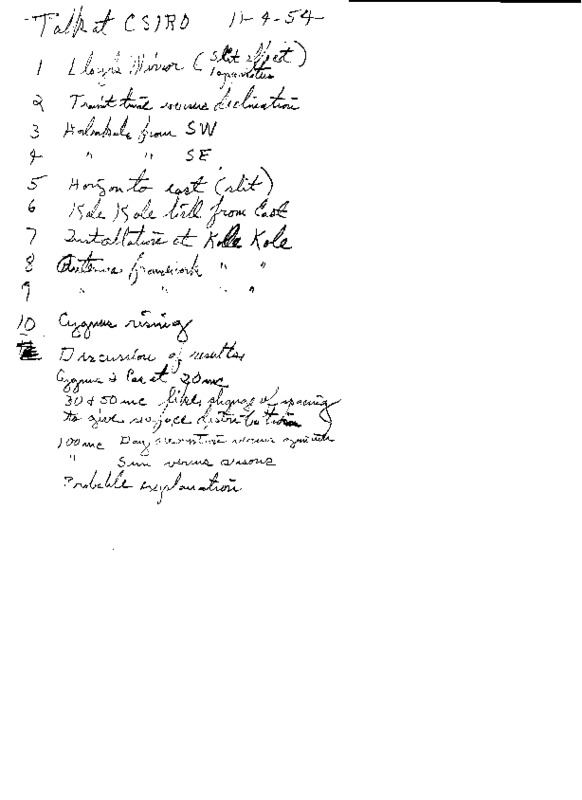 Talk at CSIRO 11-4-54
1 Lloyd's Mirror (slit effect)
2 Transit time versus declination
3 Haleakala from SW
4 " " SE
5 Horizon to east (slit)
6 Kole Kole hill from East
7 Installation at Kole Kole
8 Antenna framework " "
9 " " " "
10 Cygnus rising
Discussion of results
Cygnus & Cas at 20mc
30 & 50 mc fixes, change of spacing
to give surface distribution
100mc Day versus azimuth
" Sun versus seasons
Probable explanation